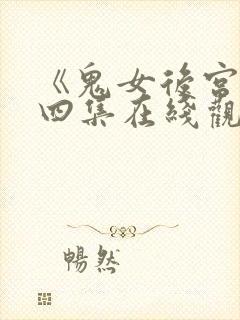 《鬼女後宮
四集在綫觀
暢然